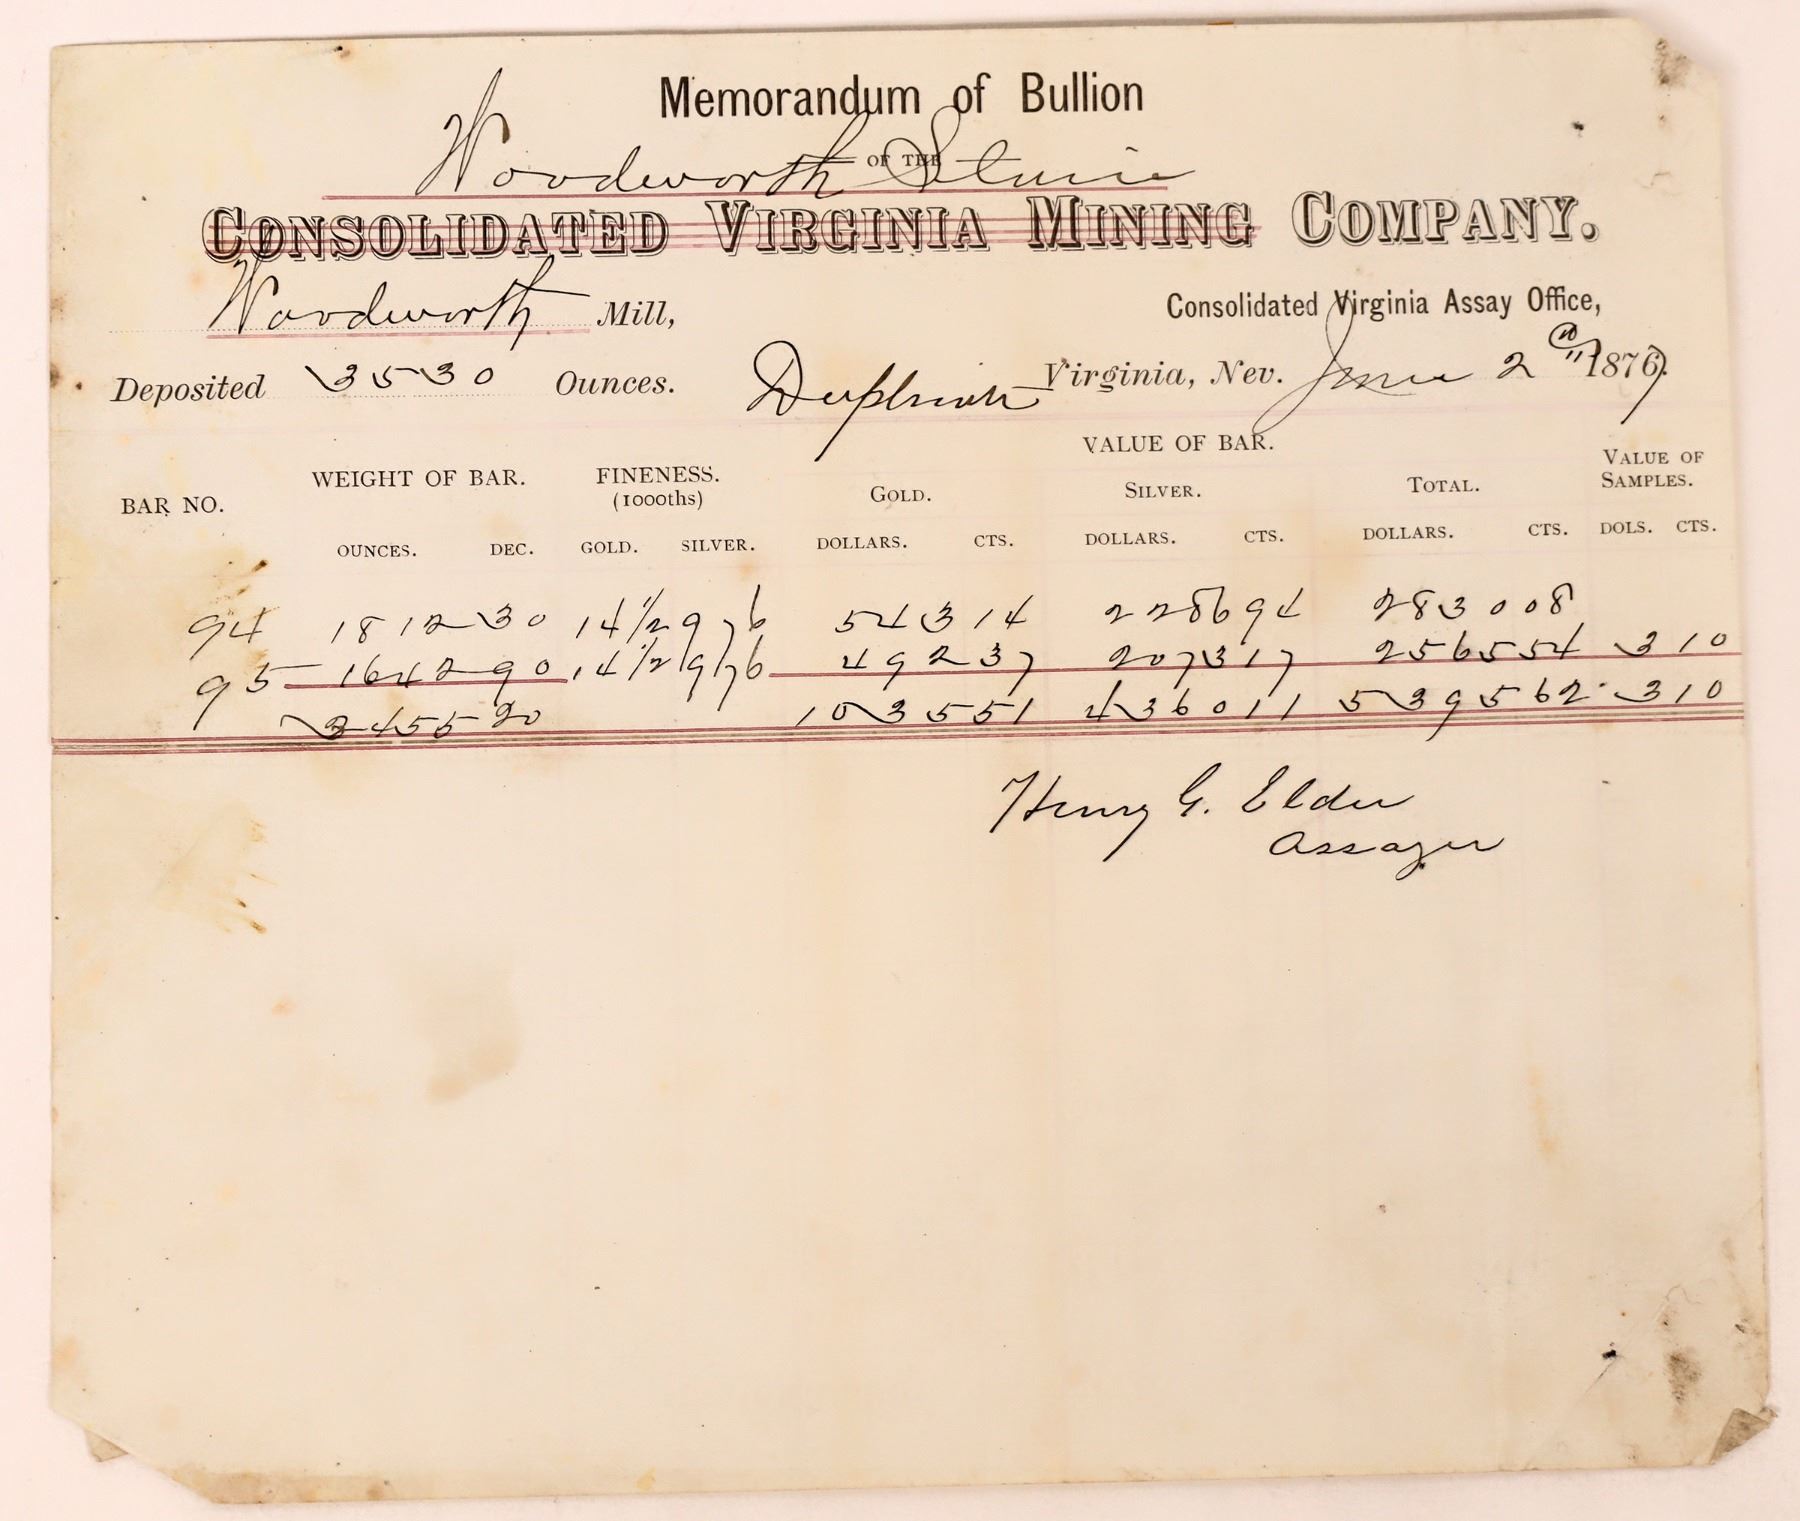 Memorandum of Bullion
Woodworth Sluice
OF THE
CONSOLIDATED VIRGINIA MINING COMPANY.
Woodworth Mill,
Consolidated Virginia Assay Office,
Deposited 3530 Ounces. Duplicate Virginia, Nev. June 2nd 1877.
VALUE OF BAR.
BAR NO. WEIGHT OF BAR. FINENESS. (1000ths) GOLD. SILVER. TOTAL. VALUE OF SAMPLES.
OUNCES. DEC. GOLD. SILVER. DOLLARS. CTS. DOLLARS. CTS. DOLLARS. CTS. DOLS. CTS.
94 1812 30 14 1/2 976 543 14 2286 94 2830 08
95 1642 90 14 1/2 976 492 37 2073 17 2565 54 3 10
3455 20 1035 51 4360 11 5395 62 3 10
Henry G. Elder
Assayer